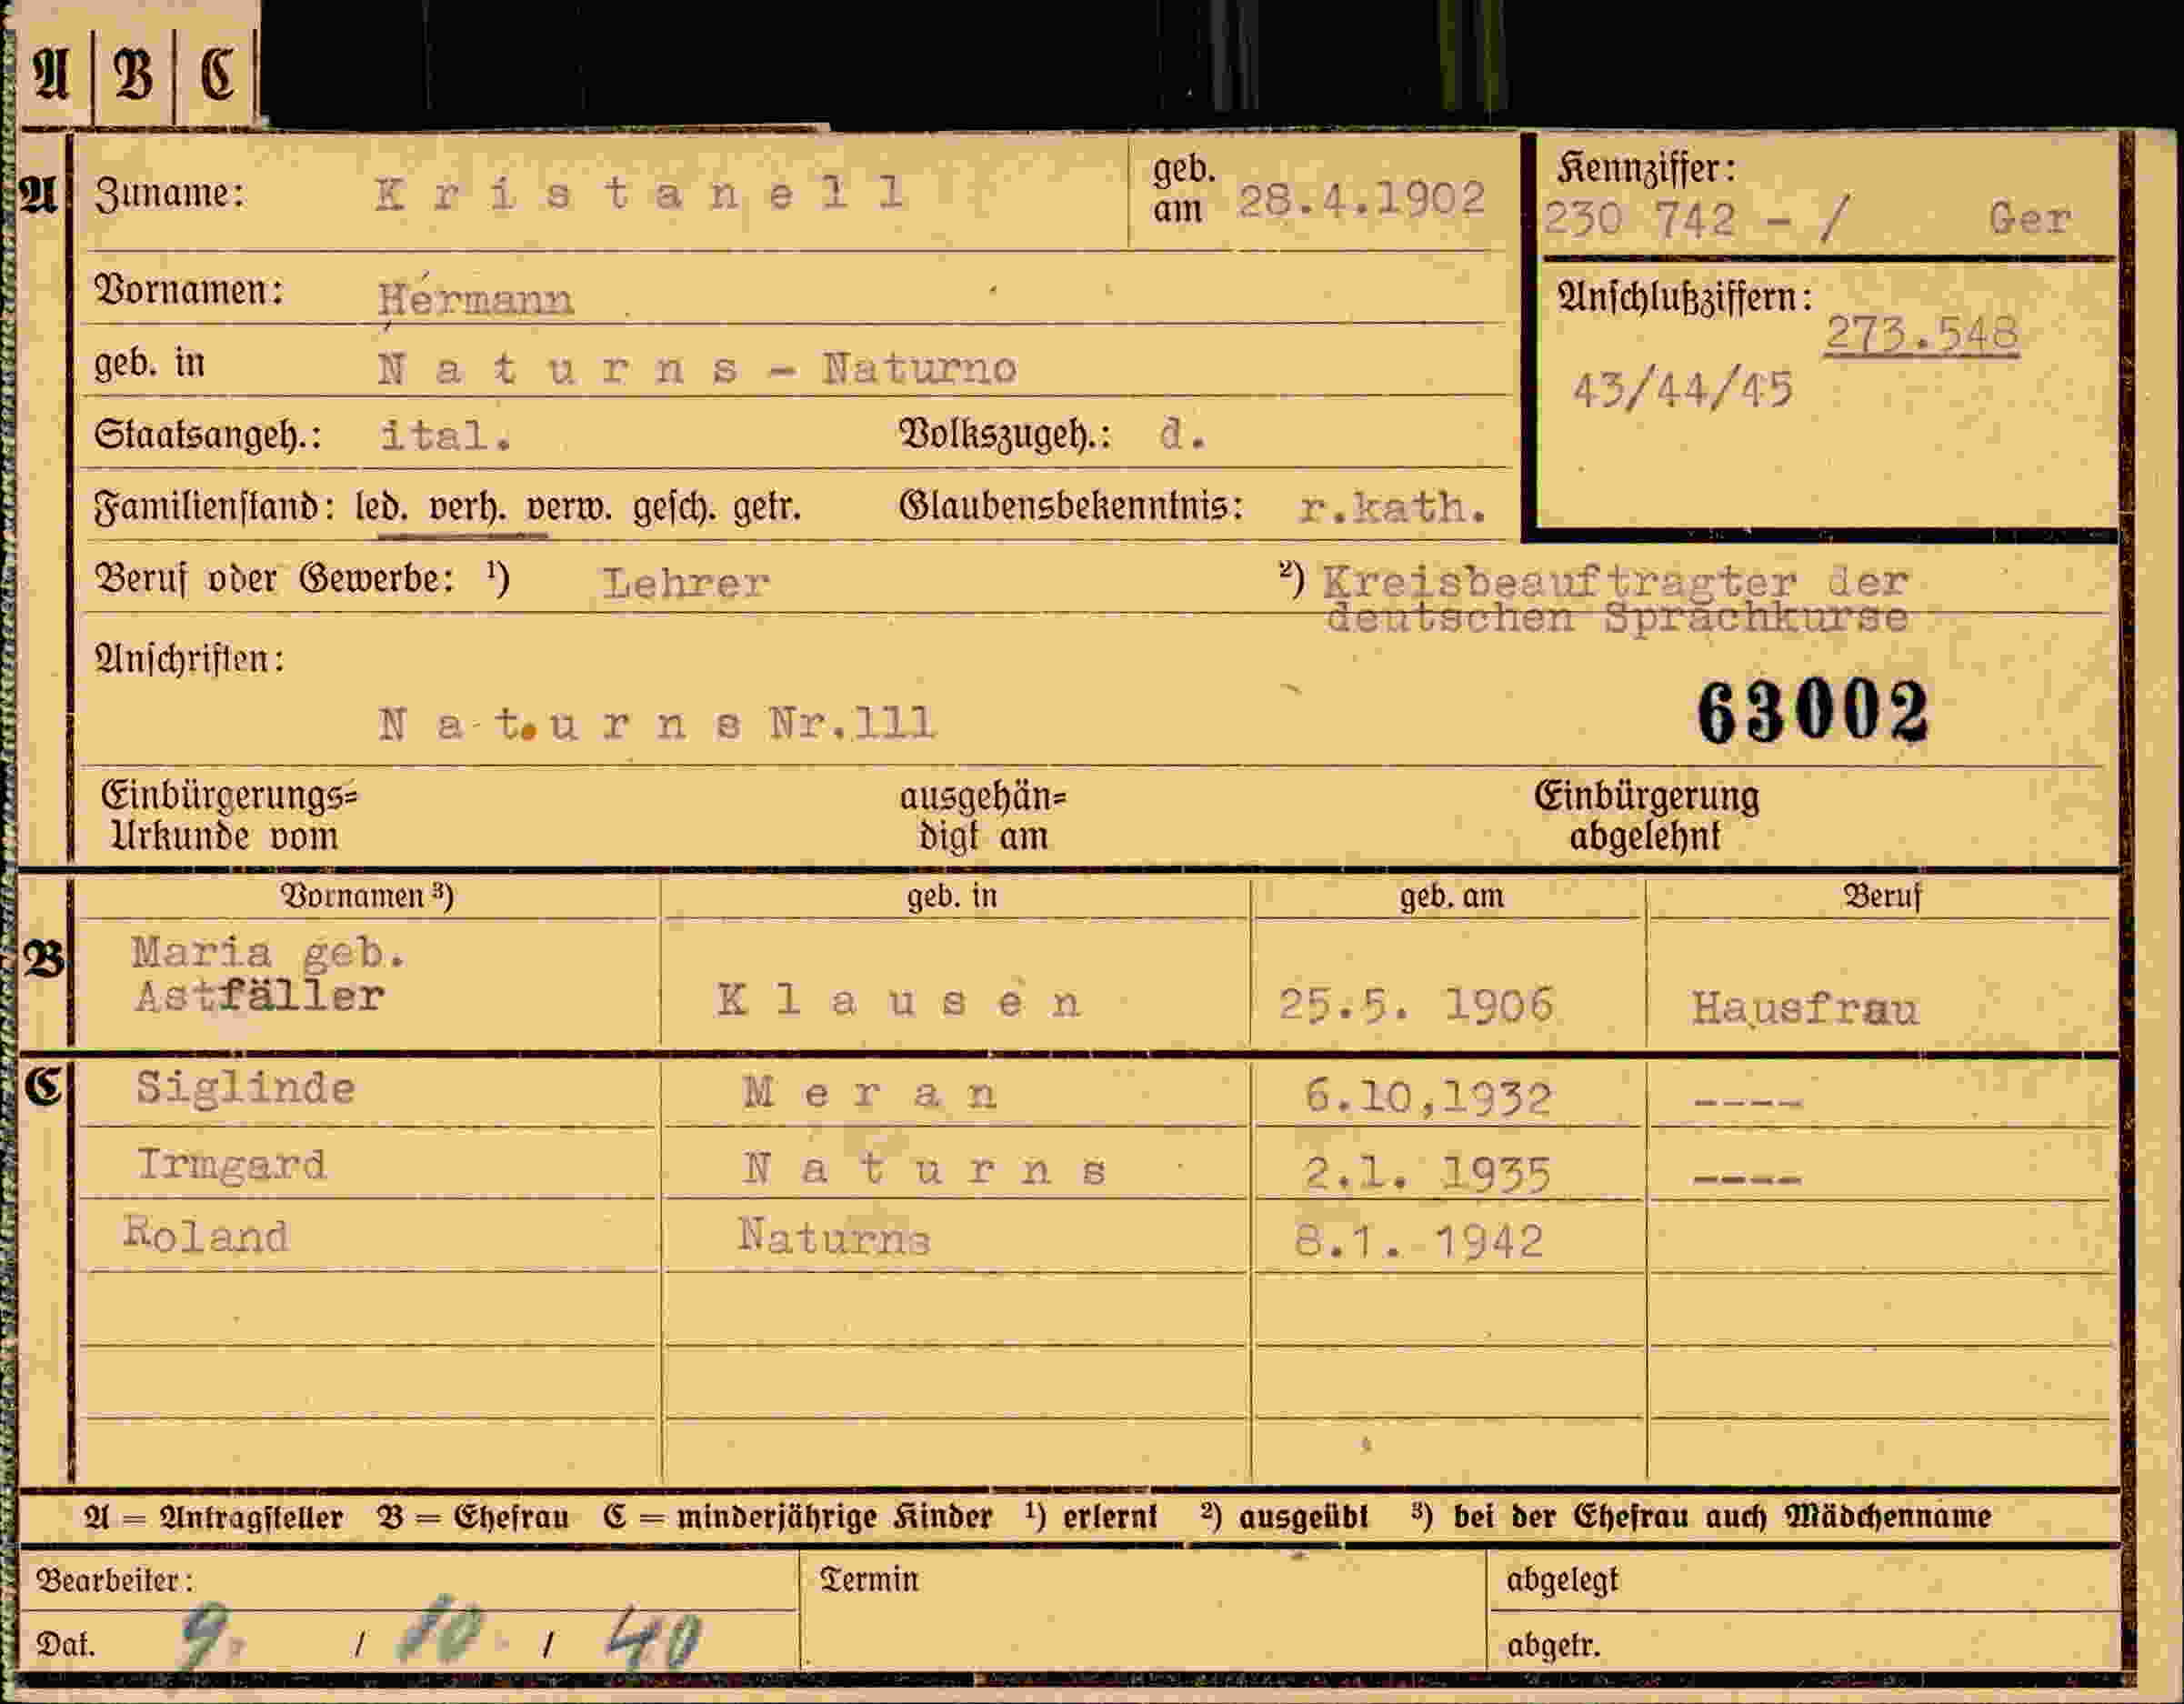 A B C
A Zuname: Kristanell geb. am 28.4.1902 Kennziffer:
230 742 - / Ger
Vornamen: Hermann
Anschlußziffern:
273.548
geb. in Naturns - Naturno
43/44/45
Staatsangeh.: ital. Volkszugeh.: d.
Familienstand: led. verh. verw. gesch. getr. Glaubensbekenntnis: r.kath.
Beruf oder Gewerbe: ¹) Lehrer ²) Kreisbeauftragter der
deutschen Sprachkurse
Anschriften:
Naturns Nr.111 63002
Einbürgerungs= ausgehän= Einbürgerung
Urkunde vom digt am abgelehnt
Vornamen ³) geb. in geb. am Beruf
B Maria geb.
Astfäller Klausen 25.5. 1906 Hausfrau
C Siglinde Meran 6.10,1932 ----
Irmgard Naturns 2.1. 1935 ----
Roland Naturns 8.1. 1942
A = Antragsteller B = Ehefrau C = minderjährige Kinder ¹) erlernt ²) ausgeübt ³) bei der Ehefrau auch Mädchenname
Bearbeiter: Termin abgelegt
Dat. 9. / 10. / 40 abgetr.